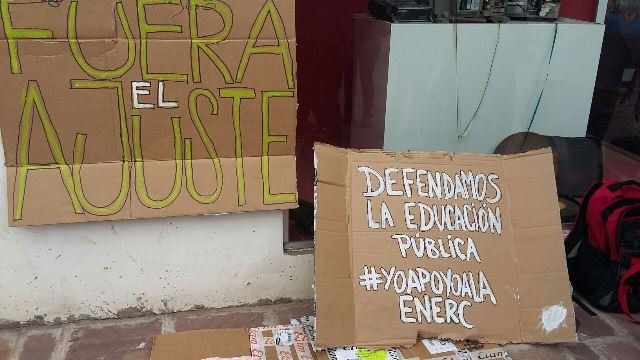 FUERA
EL
AJUSTE
DEFENDAMOS
LA EDUCACIÓN
PÚBLICA
#YOAPOYOALA
ENERC